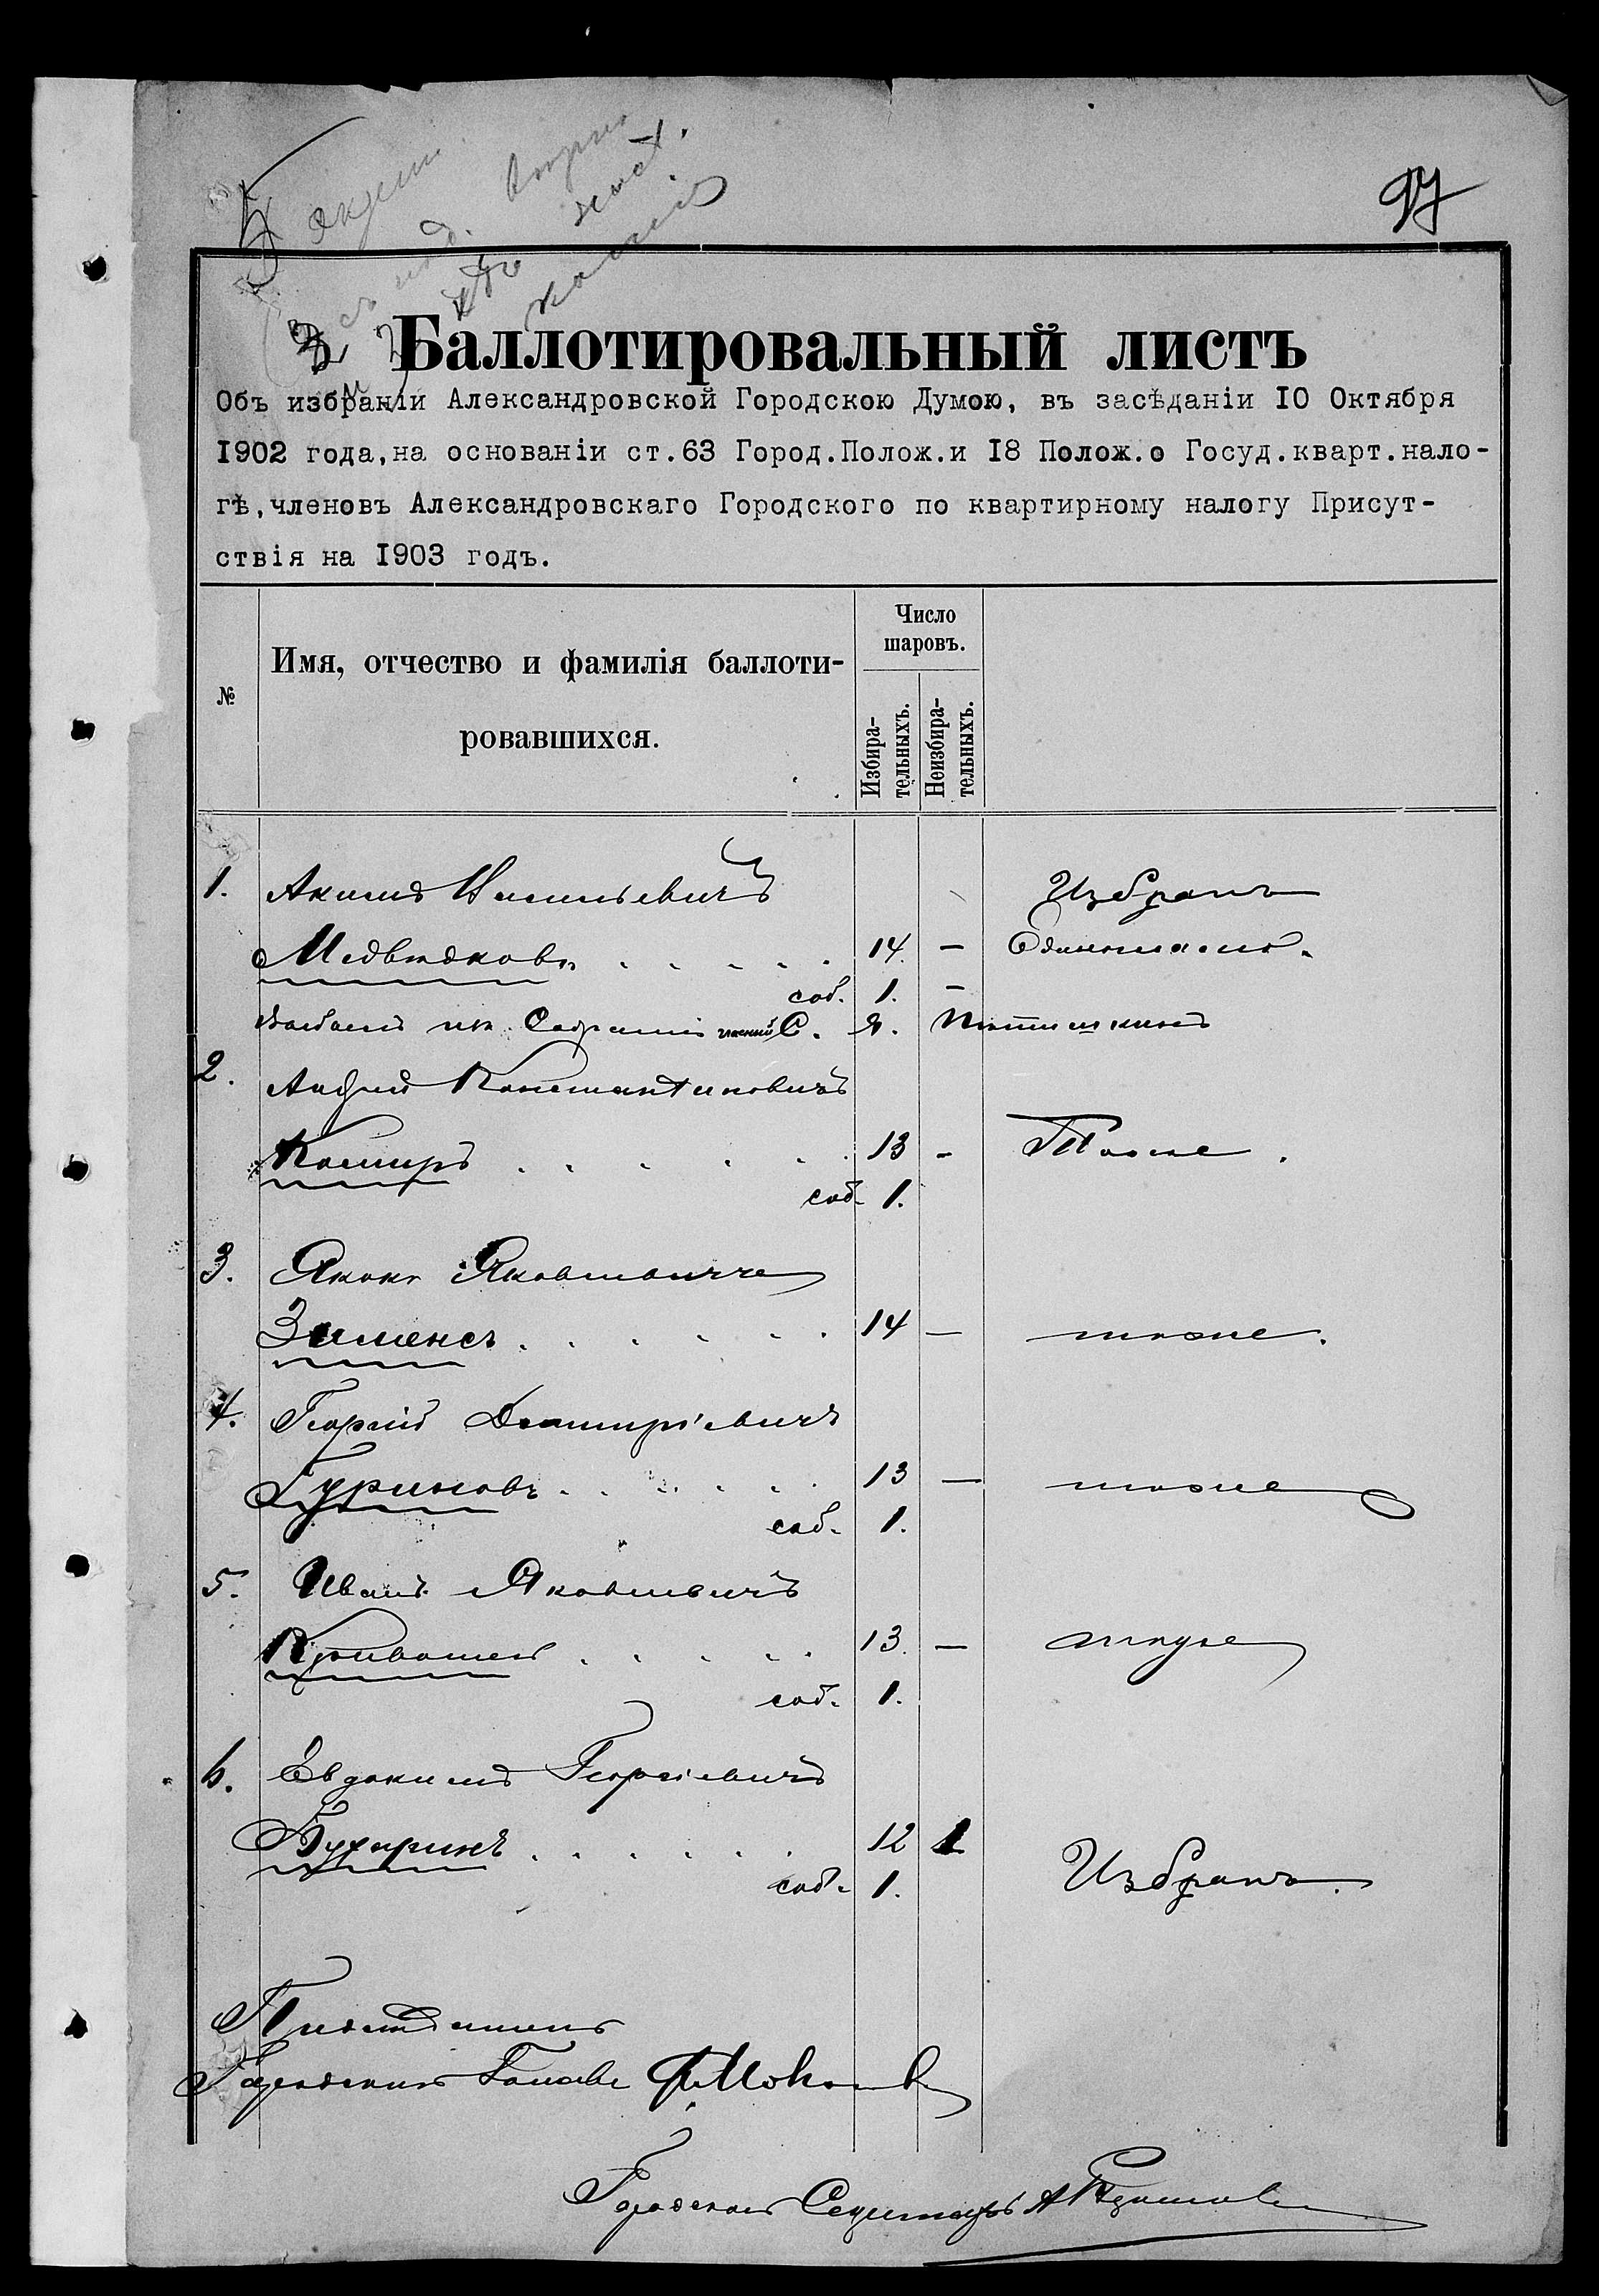 97
Баллотировальный листъ
Объ избраніи Александровской Городскою Думою, въ засѣданіи 10 Октября
1902 года, на основаніи ст.63 Город.Полож.и 18 Полож.о Госуд.кварт.нало-
гѣ,членовъ Александровскаго Городского по квартирному налогу Присут-
ствія на 1903 годъ.
№
Имя, отчество и фамилія баллоти-
ровавшихся.
Число
шаровъ.
Избира-
тельныхъ.
Неизбира-
тельныхъ.
1. Акимъ Васильевичъ Избранъ
Медвѣдковъ . . . . . 14. — Единогласно.
соб. 1. —
изъ Собранія гласный С. Я.
2. Андрей Константиновичъ
Каширъ . . . . . . 13 - Тоже.
соб. 1.
3. Яковъ Яковлевичъ
Зименсъ . . . . . . 14 — тоже.
4. Георгій Дмитріевичъ
Гуриновъ . . . . . . 13 — тоже
соб. 1.
5. Иванъ Яковлевичъ
Кривошея . . . . . 13. — тоже
соб. 1.
6. Евдокимъ Георгіевичъ
Бухаринъ . . . . . . 12 1
соб. 1. Избранъ.
Городской Голова
Городской Секретарь